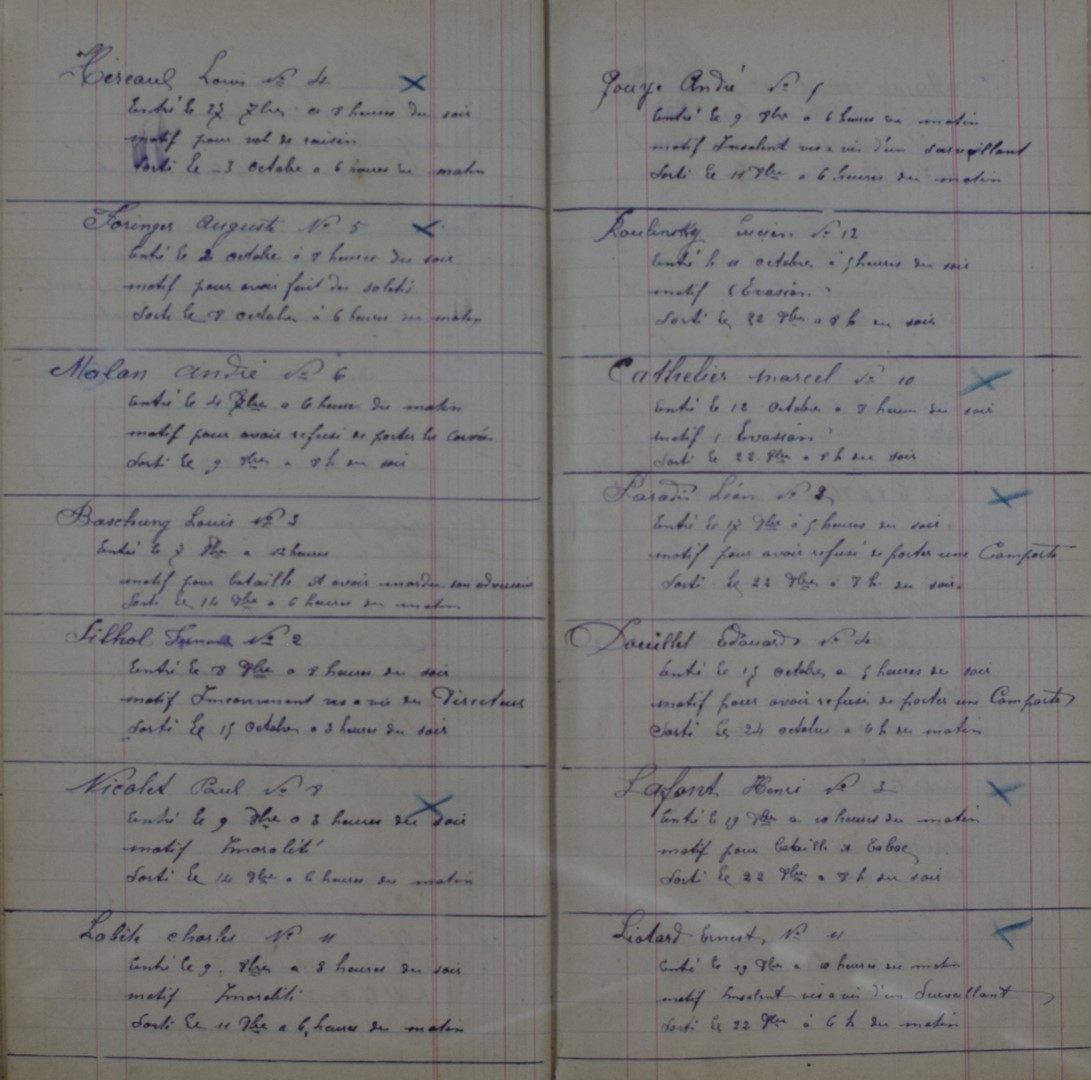 Louis No 4
Entré le 27 7bre a 8 heures du soir
motif pour vol de raisin
Sorti le 3 octobre a 6 heures du matin
Foringer Auguste No 5
Entré le 2 octobre à 8 heures du soir
motif pour avoir fait des saletés
Sorti le 8 octobre à 6 heures du matin
Malan André No 6
Entré le 4 8bre a 6 heures du matin
motif pour avoir refusé de porter les corvées
Sorti le 9 8bre a 8 h du soir
Baschung Louis No 3
Entré le 7 8bre a 12 heures
motif pour bataille et avoir mordu son adversaire
Sorti le 14 8bre a 6 heures du matin
Silhol No 2
Entré le 8 8bre a 8 heures du soir
motif Inconvenant vis a vis du Directeur
Sorti le 15 octobre a 3 heures du soir
Nicolet Paul No 8
Entré le 9 8bre a 8 heures du soir
motif Imoralité
Sorti le 14 8bre a 6 heures du matin
Labite charles No 11
Entré le 9 8bre a 8 heures du soir
motif Imoralité
Sorti le 11 8bre a 6 heures du matin
André No 5
Entré le 9 8bre a 6 heures du matin
motif Insolent vis a vis d'un surveillant
Sorti le 11 8bre a 6 heures du matin
Roulinsky Lucien No 12
Entré le 11 octobre à 5 heures du soir
motif (Evasion)
Sorti le 22 8bre a 8 h du soir
Cathelier marcel No 10
Entré le 12 Octobre a 8 heures du soir
motif (Evasion)
Sorti le 22 8bre a 8 h du soir
Paradis Léon No
Entré le 17 8bre à 5 heures du soir
motif pour avoir refusé de porter une Comporte
Sorti le 22 8bre à 8 h. du soir.
Douillet Edouard No 4
Entré le 15 octobre a 5 heures du soir
motif pour avoir refusé de porter une Comporte
Sorti le 24 octobre a 6 h du matin
Lafont Henri No 3
Entré le 19 8bre a 10 heures du matin
motif pour bataille et tabac
Sorti le 22 8bre a 8 h du soir
Liotard Ernest No 11
Entré le 19 8bre a 10 heures du matin
motif Insolent vis a vis d'un Surveillant
Sorti le 22 8bre à 6 h du matin